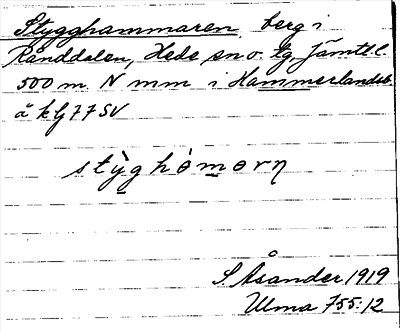 Stygghammaren, berg i
Rånddelen, Hede sn o. tg, Jämtl. l.
500 m N mm i Hammerlandsb.
å kbj 77 SV
stỳghòmərn
S. Åsander 1919
Ulma 755:12